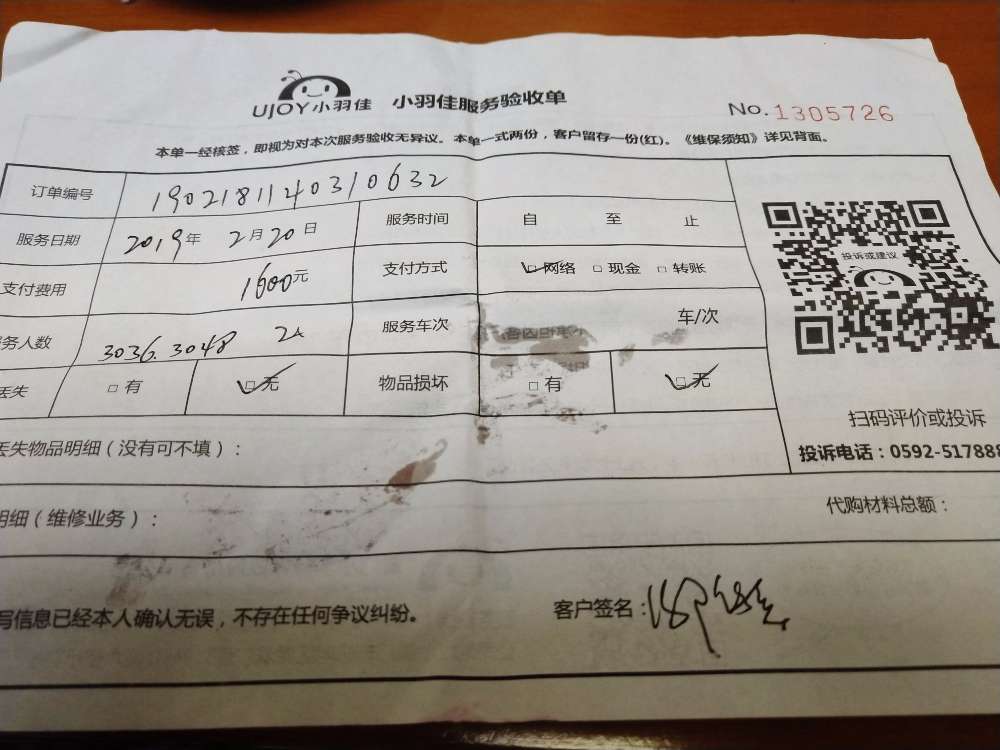 UJOY小羽佳 小羽佳服务验收单 No.1305726
本单一经核签，即视为对本次服务验收无异议。本单一式两份，客户留存一份(红)。《维保须知》详见背面。
订单编号 190218114031 0632
服务日期 2019年 2月20日 服务时间 自 至 止
投诉或建议
支付费用 1600元 支付方式 网络 □现金 □转账
务人数 3036.3048 2人 服务车次 车/次
丢失 □有 □无 物品损坏 □有 □无
扫码评价或投诉
丢失物品明细（没有可不填）： 投诉电话：0592-517888
明细（维修业务）： 代购材料总额：
写信息已经本人确认无误，不存在任何争议纠纷。 客户签名：